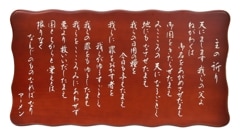 主の祈り
天にまします 我らの父よ
ねがわくは
み名をあがめさせたまえ
み国をきたらせたまえ
みこころの天になるごとく
地にもなさせたまえ
我らの日用の糧を
今日も与えたまえ
我らに罪をおかす者を
我らがゆるすごとく
我らの罪をもゆるしたまえ
我らをこころみにあわせず
悪より救いいだしたまえ
国とちからと栄えとは
限りなく
なんじのものなればなり
アーメン